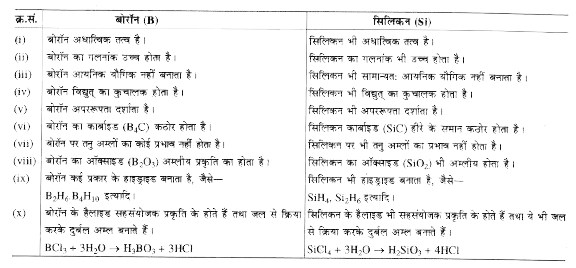 क्र.सं. बोरॉन (B) सिलिकन (Si)
(i) बोरॉन अधात्विक तत्व है। सिलिकन भी अधात्विक तत्व है।
(ii) बोरॉन का गलनांक उच्च होता है। सिलिकन का गलनांक भी उच्च होता है।
(iii) बोरॉन आयनिक यौगिक नहीं बनाता है। सिलिकन भी सामान्यतः आयनिक यौगिक नहीं बनाता है।
(iv) बोरॉन विद्युत् का कुचालक होता है। सिलिकन भी विद्युत् का कुचालक होता है।
(v) बोरॉन अपररूपता दर्शाता है। सिलिकन भी अपररूपता दर्शाता है।
(vi) बोरॉन का कार्बाइड (B₄C) कठोर होता है। सिलिकन कार्बाइड (SiC) हीरे के समान कठोर होता है।
(vii) बोरॉन पर तनु अम्लों का कोई प्रभाव नहीं होता है। सिलिकन पर भी तनु अम्लों का प्रभाव नहीं होता है।
(viii) बोरॉन का ऑक्साइड (B₂O₃) अम्लीय प्रकृति का होता है। सिलिकन का ऑक्साइड (SiO₂) भी अम्लीय होता है।
(ix) बोरॉन कई प्रकार के हाइड्राइड बनाता है, जैसे— सिलिकन भी हाइड्राइड बनाता है, जैसे—
B₂H₆ B₄H₁₀ इत्यादि। SiH₄, Si₂H₆ इत्यादि।
(x) बोरॉन के हैलाइड सहसंयोजक प्रकृति के होते हैं तथा जल से क्रिया सिलिकन के हैलाइड भी सहसंयोजक प्रकृति के होते हैं तथा ये भी जल
करके दुर्बल अम्ल बनाते हैं। से क्रिया करके दुर्बल अम्ल बनाते हैं।
BCl₃ + 3H₂O → H₃BO₃ + 3HCl SiCl₄ + 3H₂O → H₂SiO₃ + 4HCl